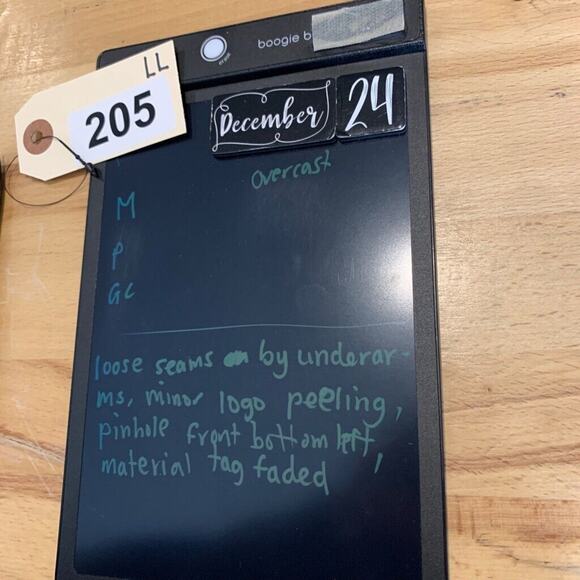 boogie b
erase
LL
205
December 24
Overcast
M
P
GC
loose seams by underar-
ms, minor logo peeling,
pinhole front bottom left,
material tag faded